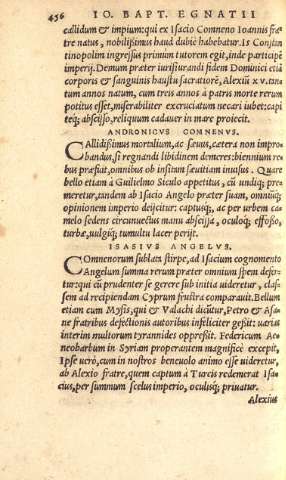 456 IO. BAPT. EGNATII
callidum & impium: qui ex Isacio Comneno Ioannis fra=
tre natus, nobilißimus haud dubiè habebatur. Is Constan
tinopolim ingressus primùm tutorem egit, inde participē
imperij. Demum præter iurisiurandi fidem Dominici etiā
corporis & sanguinis haustu sacratiorē, Alexiū xv. tan=
tum annos natum, cum treis annos à patris morte rerum
potitus esset, miserabiliter excruciatum necari iubet: capi=
teq; abscisso, reliquum cadauer in mare proiecit.
ANDRONICVS COMNENVS.
Callidißimus mortalium, ac sæuus, cætera non impro=
bandus, si regnandi libidinem demeres: biennium re=
bus præfuit, omnibus ob insitam sæuitiam inuisus. Quare
bello etiam à Guilielmo Siculo appetitus, cū undiq; pre=
meretur, tandem ab Isacio Angelo præter suam, omniūq;
opinionem imperio deijcitur: captusq;, ac per urbem ca=
melo sedens circunuectus manu abscissa, oculoq; effosso,
turbæ, uulgiq; tumultu lacer perijt.
ISASIVS ANGELVS.
Comnenorum sublata stirpe, ad Isacium cognomento
Angelum summa rerum præter omnium spem defer=
tur: qui cū prudenter se gerere sub initia uideretur, clas=
sem ad recipiendam Cyprum frustra comparauit. Bellum
etiam cum Mysis, qui & Valachi dicūtur, Petro & Asa=
ne fratribus defectionis autoribus infeliciter geßit: uarias
interim multorum tyrannides oppreßit. Federicum Ae=
neobarbum in Syriam properantem magnificè excepit,
Ipse uerò, cum in nostros beneuolo animo esse uideretur,
ab Alexio fratre, quem captum à Turcis redemerat Isa=
cius, per summum scelus imperio, oculisq; priuatur.
Alexius